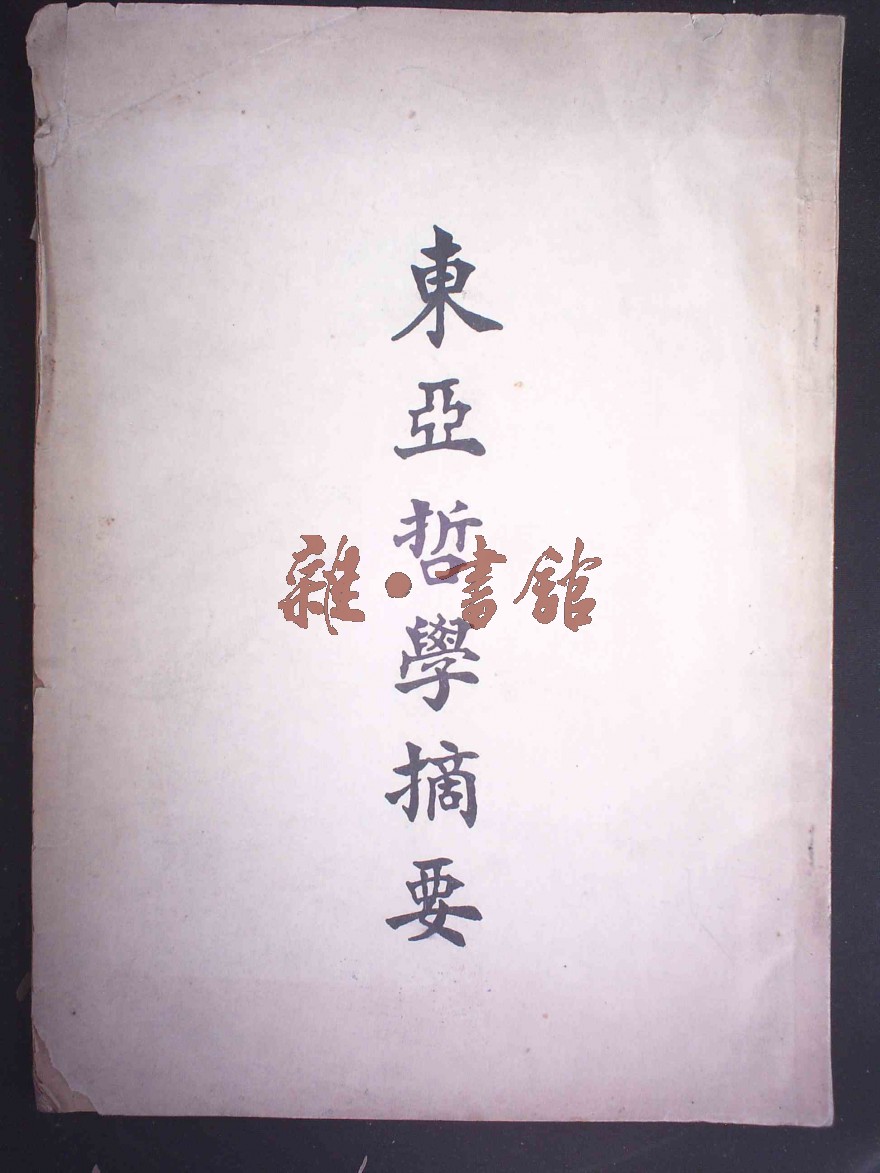 東亞哲學摘要
雜·書館